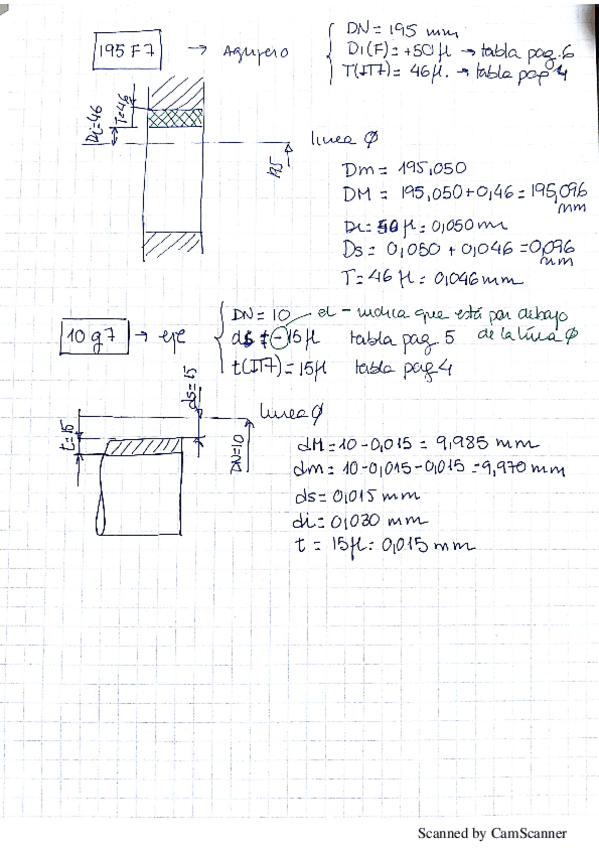 195 F7 → Agujero
DN = 195 mm
Di(F) = +50 µ → tabla pag. 6
T(IT7) = 46 µ. → tabla pag 4
Di=46
T=46
línea ϕ
195
Dm = 195,050
DM = 195,050+0,46 = 195,096 mm
Di = 50 µ = 0,050 mm
Ds = 0,050 + 0,046 = 0,096 mm
T = 46 µ = 0,046 mm
10 g7 → eje
DN = 10
el - indica que está por debajo de la línea ϕ
ds = -15 µ tabla pag. 5
t(IT7) = 15 µ tabla pag 4
ds=15
t=15
línea ϕ
DN=10
dM = 10 - 0,015 = 9,985 mm
dm = 10 - 0,015 - 0,015 = 9,970 mm
ds = 0,015 mm
di = 0,030 mm
t = 15 µ = 0,015 mm
Scanned by CamScanner